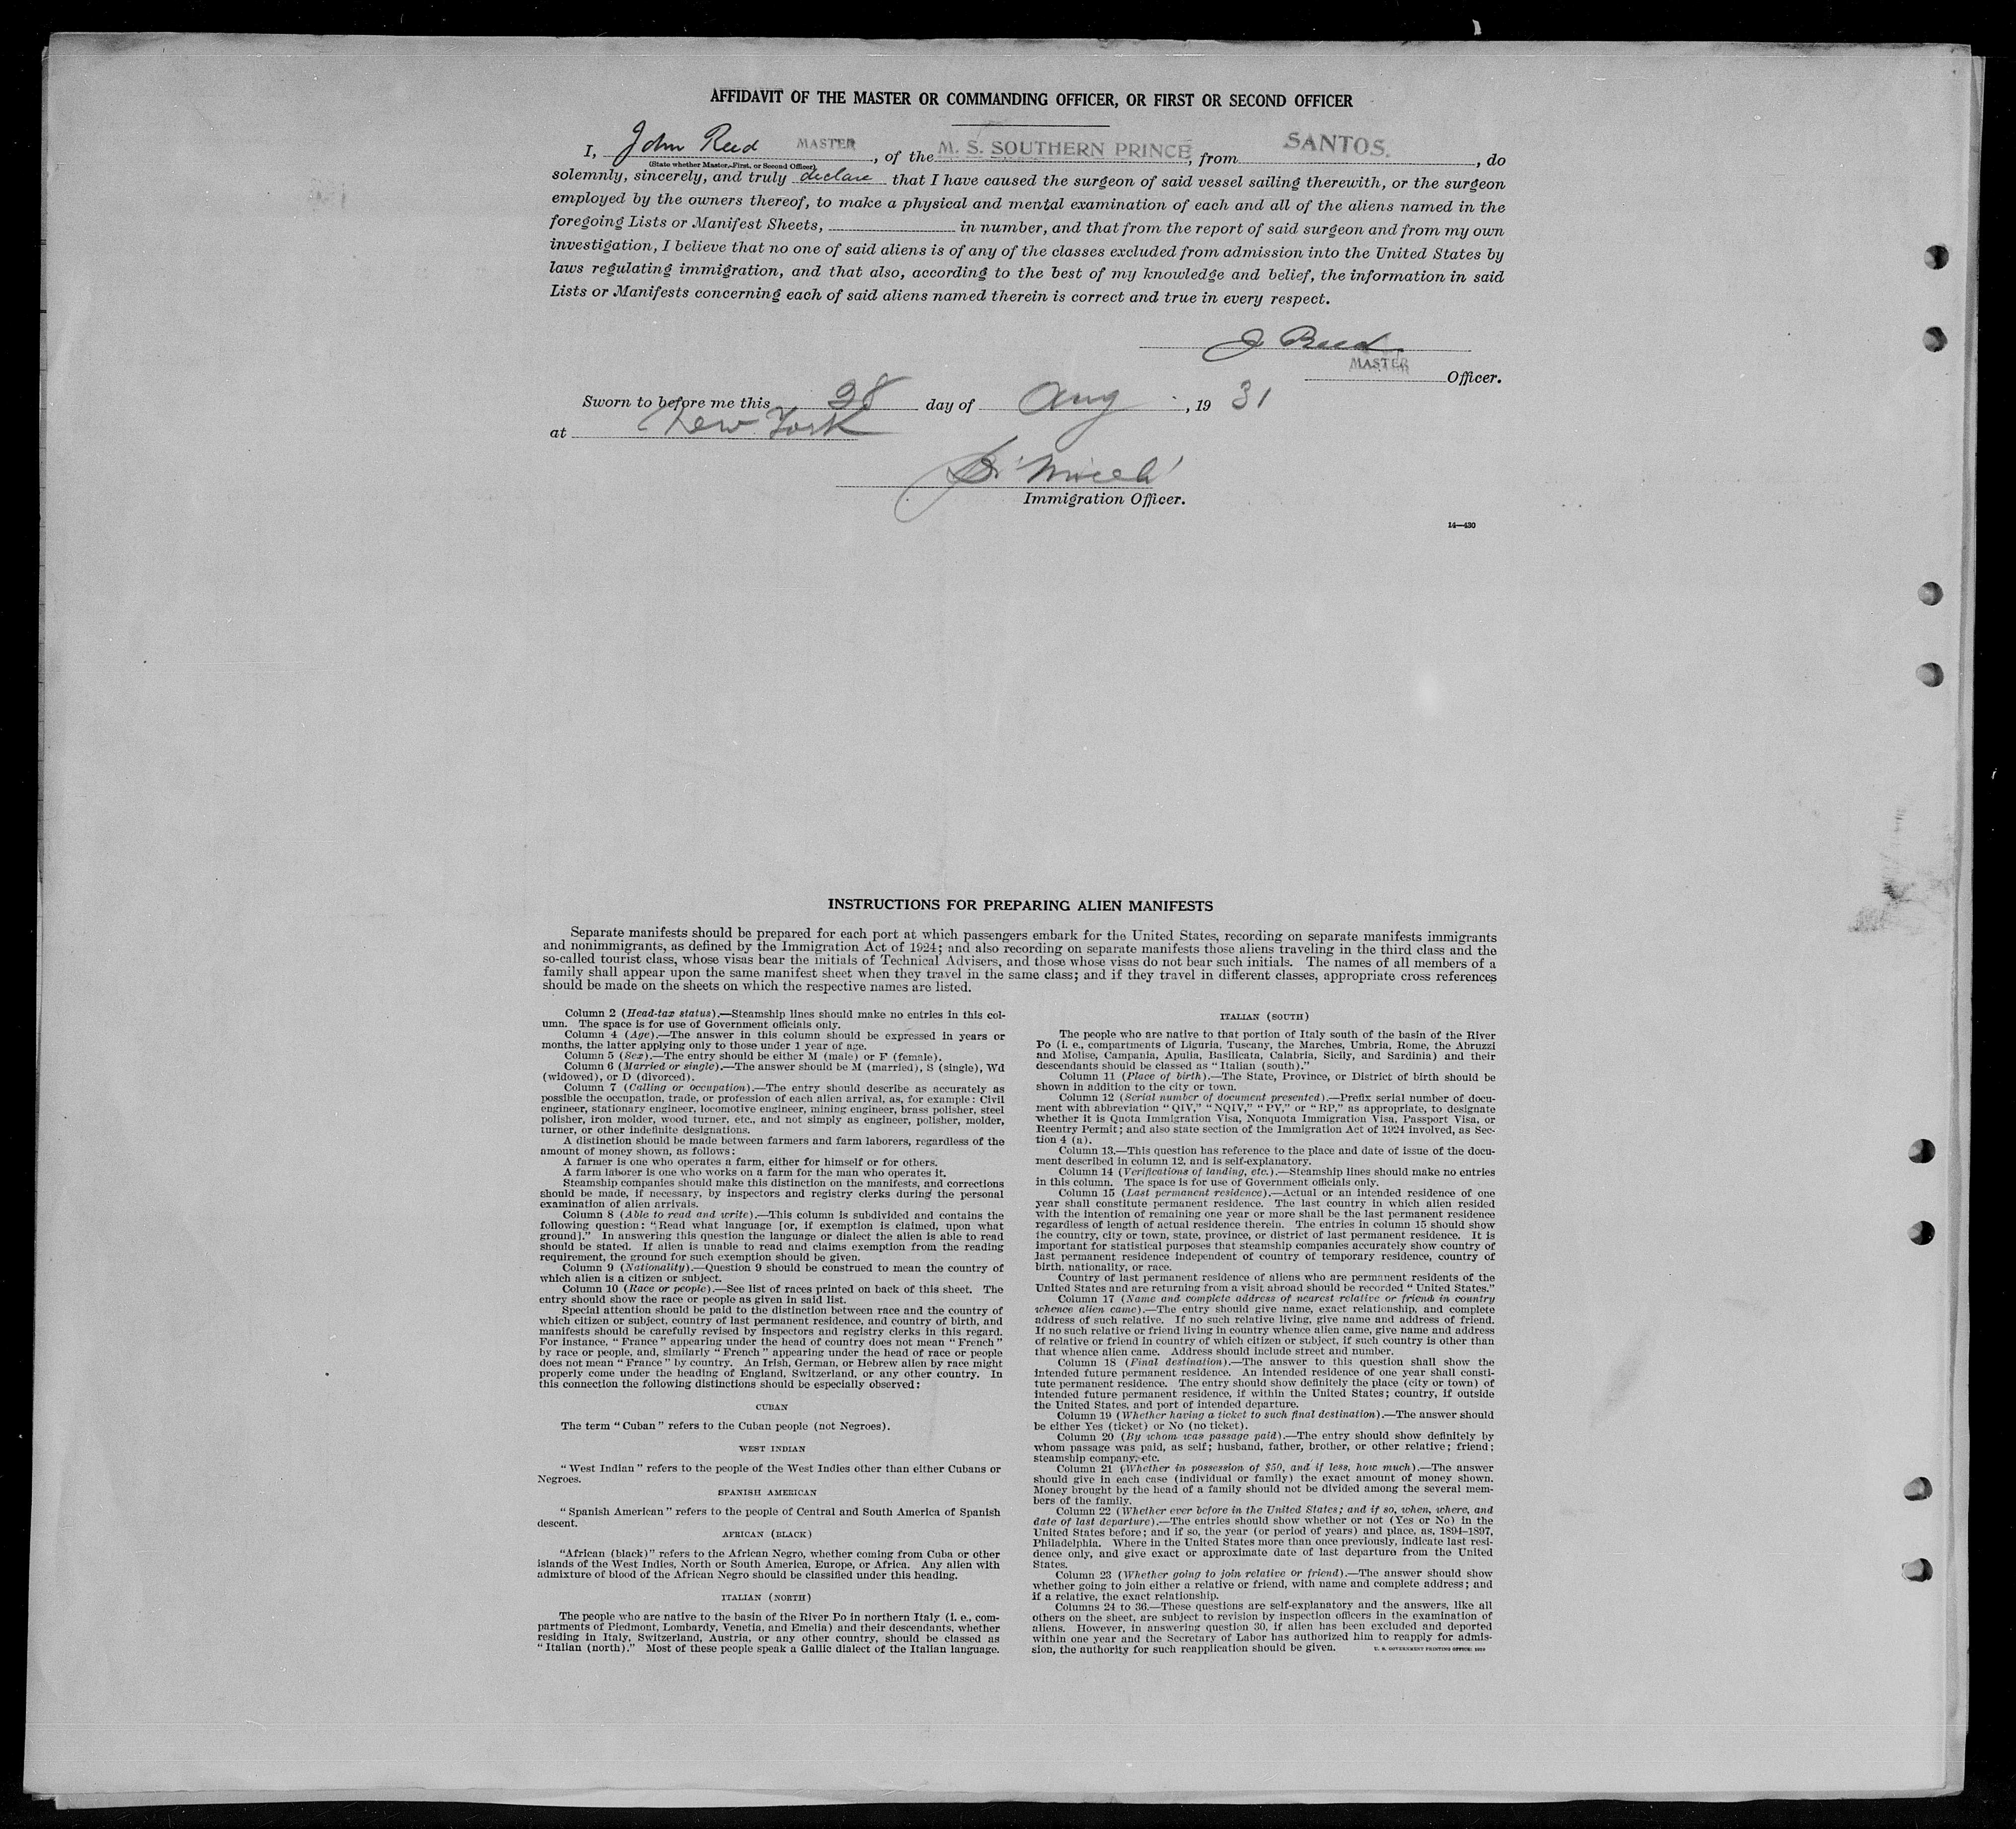 AFFIDAVIT OF THE MASTER OR COMMANDING OFFICER, OR FIRST OR SECOND OFFICER
I, John Reed MASTER, of the M. S. SOUTHERN PRINCE, from SANTOS., do
(State whether Master, First, or Second Officer)
solemnly, sincerely, and truly declare that I have caused the surgeon of said vessel sailing therewith, or the surgeon
employed by the owners thereof, to make a physical and mental examination of each and all of the aliens named in the
foregoing Lists or Manifest Sheets, in number, and that from the report of said surgeon and from my own
investigation, I believe that no one of said aliens is of any of the classes excluded from admission into the United States by
laws regulating immigration, and that also, according to the best of my knowledge and belief, the information in said
Lists or Manifests concerning each of said aliens named therein is correct and true in every respect.
J Reed
MASTER
Officer.
Sworn to before me this 28 day of Aug, 19 31
at New York
Immigration Officer.
14—430
INSTRUCTIONS FOR PREPARING ALIEN MANIFESTS
Separate manifests should be prepared for each port at which passengers embark for the United States, recording on separate manifests immigrants
and nonimmigrants, as defined by the Immigration Act of 1924; and also recording on separate manifests those aliens traveling in the third class and the
so-called tourist class, whose visas bear the initials of Technical Advisers, and those whose visas do not bear such initials. The names of all members of a
family shall appear upon the same manifest sheet when they travel in the same class; and if they travel in different classes, appropriate cross references
should be made on the sheets on which the respective names are listed.
Column 2 (Head-tax status).—Steamship lines should make no entries in this col-
umn. The space is for use of Government officials only.
Column 4 (Age).—The answer in this column should be expressed in years or
months, the latter applying only to those under 1 year of age.
Column 5 (Sex).—The entry should be either M (male) or F (female).
Column 6 (Married or single).—The answer should be M (married), S (single), Wd
(widowed), or D (divorced).
Column 7 (Calling or occupation).—The entry should describe as accurately as
possible the occupation, trade, or profession of each alien arrival, as, for example: Civil
engineer, stationary engineer, locomotive engineer, mining engineer, brass polisher, steel
polisher, iron molder, wood turner, etc., and not simply as engineer, polisher, molder,
turner, or other indefinite designations.
A distinction should be made between farmers and farm laborers, regardless of the
amount of money shown, as follows:
A farmer is one who operates a farm, either for himself or for others.
A farm laborer is one who works on a farm for the man who operates it.
Steamship companies should make this distinction on the manifests, and corrections
should be made, if necessary, by inspectors and registry clerks during the personal
examination of alien arrivals.
Column 8 (Able to read and write).—This column is subdivided and contains the
following question: "Read what language [or, if exemption is claimed, upon what
ground]." In answering this question the language or dialect the alien is able to read
should be stated. If alien is unable to read and claims exemption from the reading
requirement, the ground for such exemption should be given.
Column 9 (Nationality).—Question 9 should be construed to mean the country of
which alien is a citizen or subject.
Column 10 (Race or people).—See list of races printed on back of this sheet. The
entry should show the race or people as given in said list.
Special attention should be paid to the distinction between race and the country of
which citizen or subject, country of last permanent residence, and country of birth, and
manifests should be carefully revised by inspectors and registry clerks in this regard.
For instance, "France" appearing under the head of country does not mean "French"
by race or people, and, similarly "French" appearing under the head of race or people
does not mean "France" by country. An Irish, German, or Hebrew alien by race might
properly come under the heading of England, Switzerland, or any other country. In
this connection the following distinctions should be especially observed:
CUBAN
The term "Cuban" refers to the Cuban people (not Negroes).
WEST INDIAN
"West Indian" refers to the people of the West Indies other than either Cubans or
Negroes.
SPANISH AMERICAN
"Spanish American" refers to the people of Central and South America of Spanish
descent.
AFRICAN (BLACK)
"African (black)" refers to the African Negro, whether coming from Cuba or other
islands of the West Indies, North or South America, Europe, or Africa. Any alien with
admixture of blood of the African Negro should be classified under this heading.
ITALIAN (NORTH)
The people who are native to the basin of the River Po in northern Italy (i. e., com-
partments of Piedmont, Lombardy, Venetia, and Emelia) and their descendants, whether
residing in Italy, Switzerland, Austria, or any other country, should be classed as
"Italian (north)." Most of these people speak a Gallic dialect of the Italian language.
ITALIAN (SOUTH)
The people who are native to that portion of Italy south of the basin of the River
Po (i. e., compartments of Liguria, Tuscany, the Marches, Umbria, Rome, the Abruzzi
and Molise, Campania, Apulia, Basilicata, Calabria, Sicily, and Sardinia) and their
descendants should be classed as "Italian (south)."
Column 11 (Place of birth).—The State, Province, or District of birth should be
shown in addition to the city or town.
Column 12 (Serial number of document presented).—Prefix serial number of docu-
ment with abbreviation "QIV," "NQIV," "PV," or "RP," as appropriate, to designate
whether it is Quota Immigration Visa, Nonquota Immigration Visa, Passport Visa, or
Reentry Permit; and also state section of the Immigration Act of 1924 involved, as Sec-
tion 4 (a).
Column 13.—This question has reference to the place and date of issue of the docu-
ment described in column 12, and is self-explanatory.
Column 14 (Verifications of landing, etc.).—Steamship lines should make no entries
in this column. The space is for use of Government officials only.
Column 15 (Last permanent residence).—Actual or an intended residence of one
year shall constitute permanent residence. The last country in which alien resided
with the intention of remaining one year or more shall be the last permanent residence
regardless of length of actual residence therein. The entries in column 15 should show
the country, city or town, state, province, or district of last permanent residence. It is
important for statistical purposes that steamship companies accurately show country of
last permanent residence independent of country of temporary residence, country of
birth, nationality, or race.
Country of last permanent residence of aliens who are permanent residents of the
United States and are returning from a visit abroad should be recorded "United States."
Column 17 (Name and complete address of nearest relative or friend in country
whence alien came).—The entry should give name, exact relationship, and complete
address of such relative. If no such relative living, give name and address of friend.
If no such relative or friend living in country whence alien came, give name and address
of relative or friend in country of which citizen or subject, if such country is other than
that whence alien came. Address should include street and number.
Column 18 (Final destination).—The answer to this question shall show the
intended future permanent residence. An intended residence of one year shall consti-
tute permanent residence. The entry should show definitely the place (city or town) of
intended future permanent residence, if within the United States; country, if outside
the United States, and port of intended departure.
Column 19 (Whether having a ticket to such final destination).—The answer should
be either Yes (ticket) or No (no ticket).
Column 20 (By whom was passage paid).—The entry should show definitely by
whom passage was paid, as self; husband, father, brother, or other relative; friend;
steamship company, etc.
Column 21 (Whether in possession of $50, and if less, how much).—The answer
should give in each case (individual or family) the exact amount of money shown.
Money brought by the head of a family should not be divided among the several mem-
bers of the family.
Column 22 (Whether ever before in the United States; and if so, when, where, and
date of last departure).—The entries should show whether or not (Yes or No) in the
United States before; and if so, the year (or period of years) and place, as, 1894–1897,
Philadelphia. Where in the United States more than once previously, indicate last resi-
dence only, and give exact or approximate date of last departure from the United
States.
Column 23 (Whether going to join relative or friend).—The answer should show
whether going to join either a relative or friend, with name and complete address; and
if a relative, the exact relationship.
Columns 24 to 36.—These questions are self-explanatory and the answers, like all
others on the sheet, are subject to revision by inspection officers in the examination of
aliens. However, in answering question 30, if alien has been excluded and deported
within one year and the Secretary of Labor has authorized him to reapply for admis-
sion, the authority for such reapplication should be given. U. S. GOVERNMENT PRINTING OFFICE: